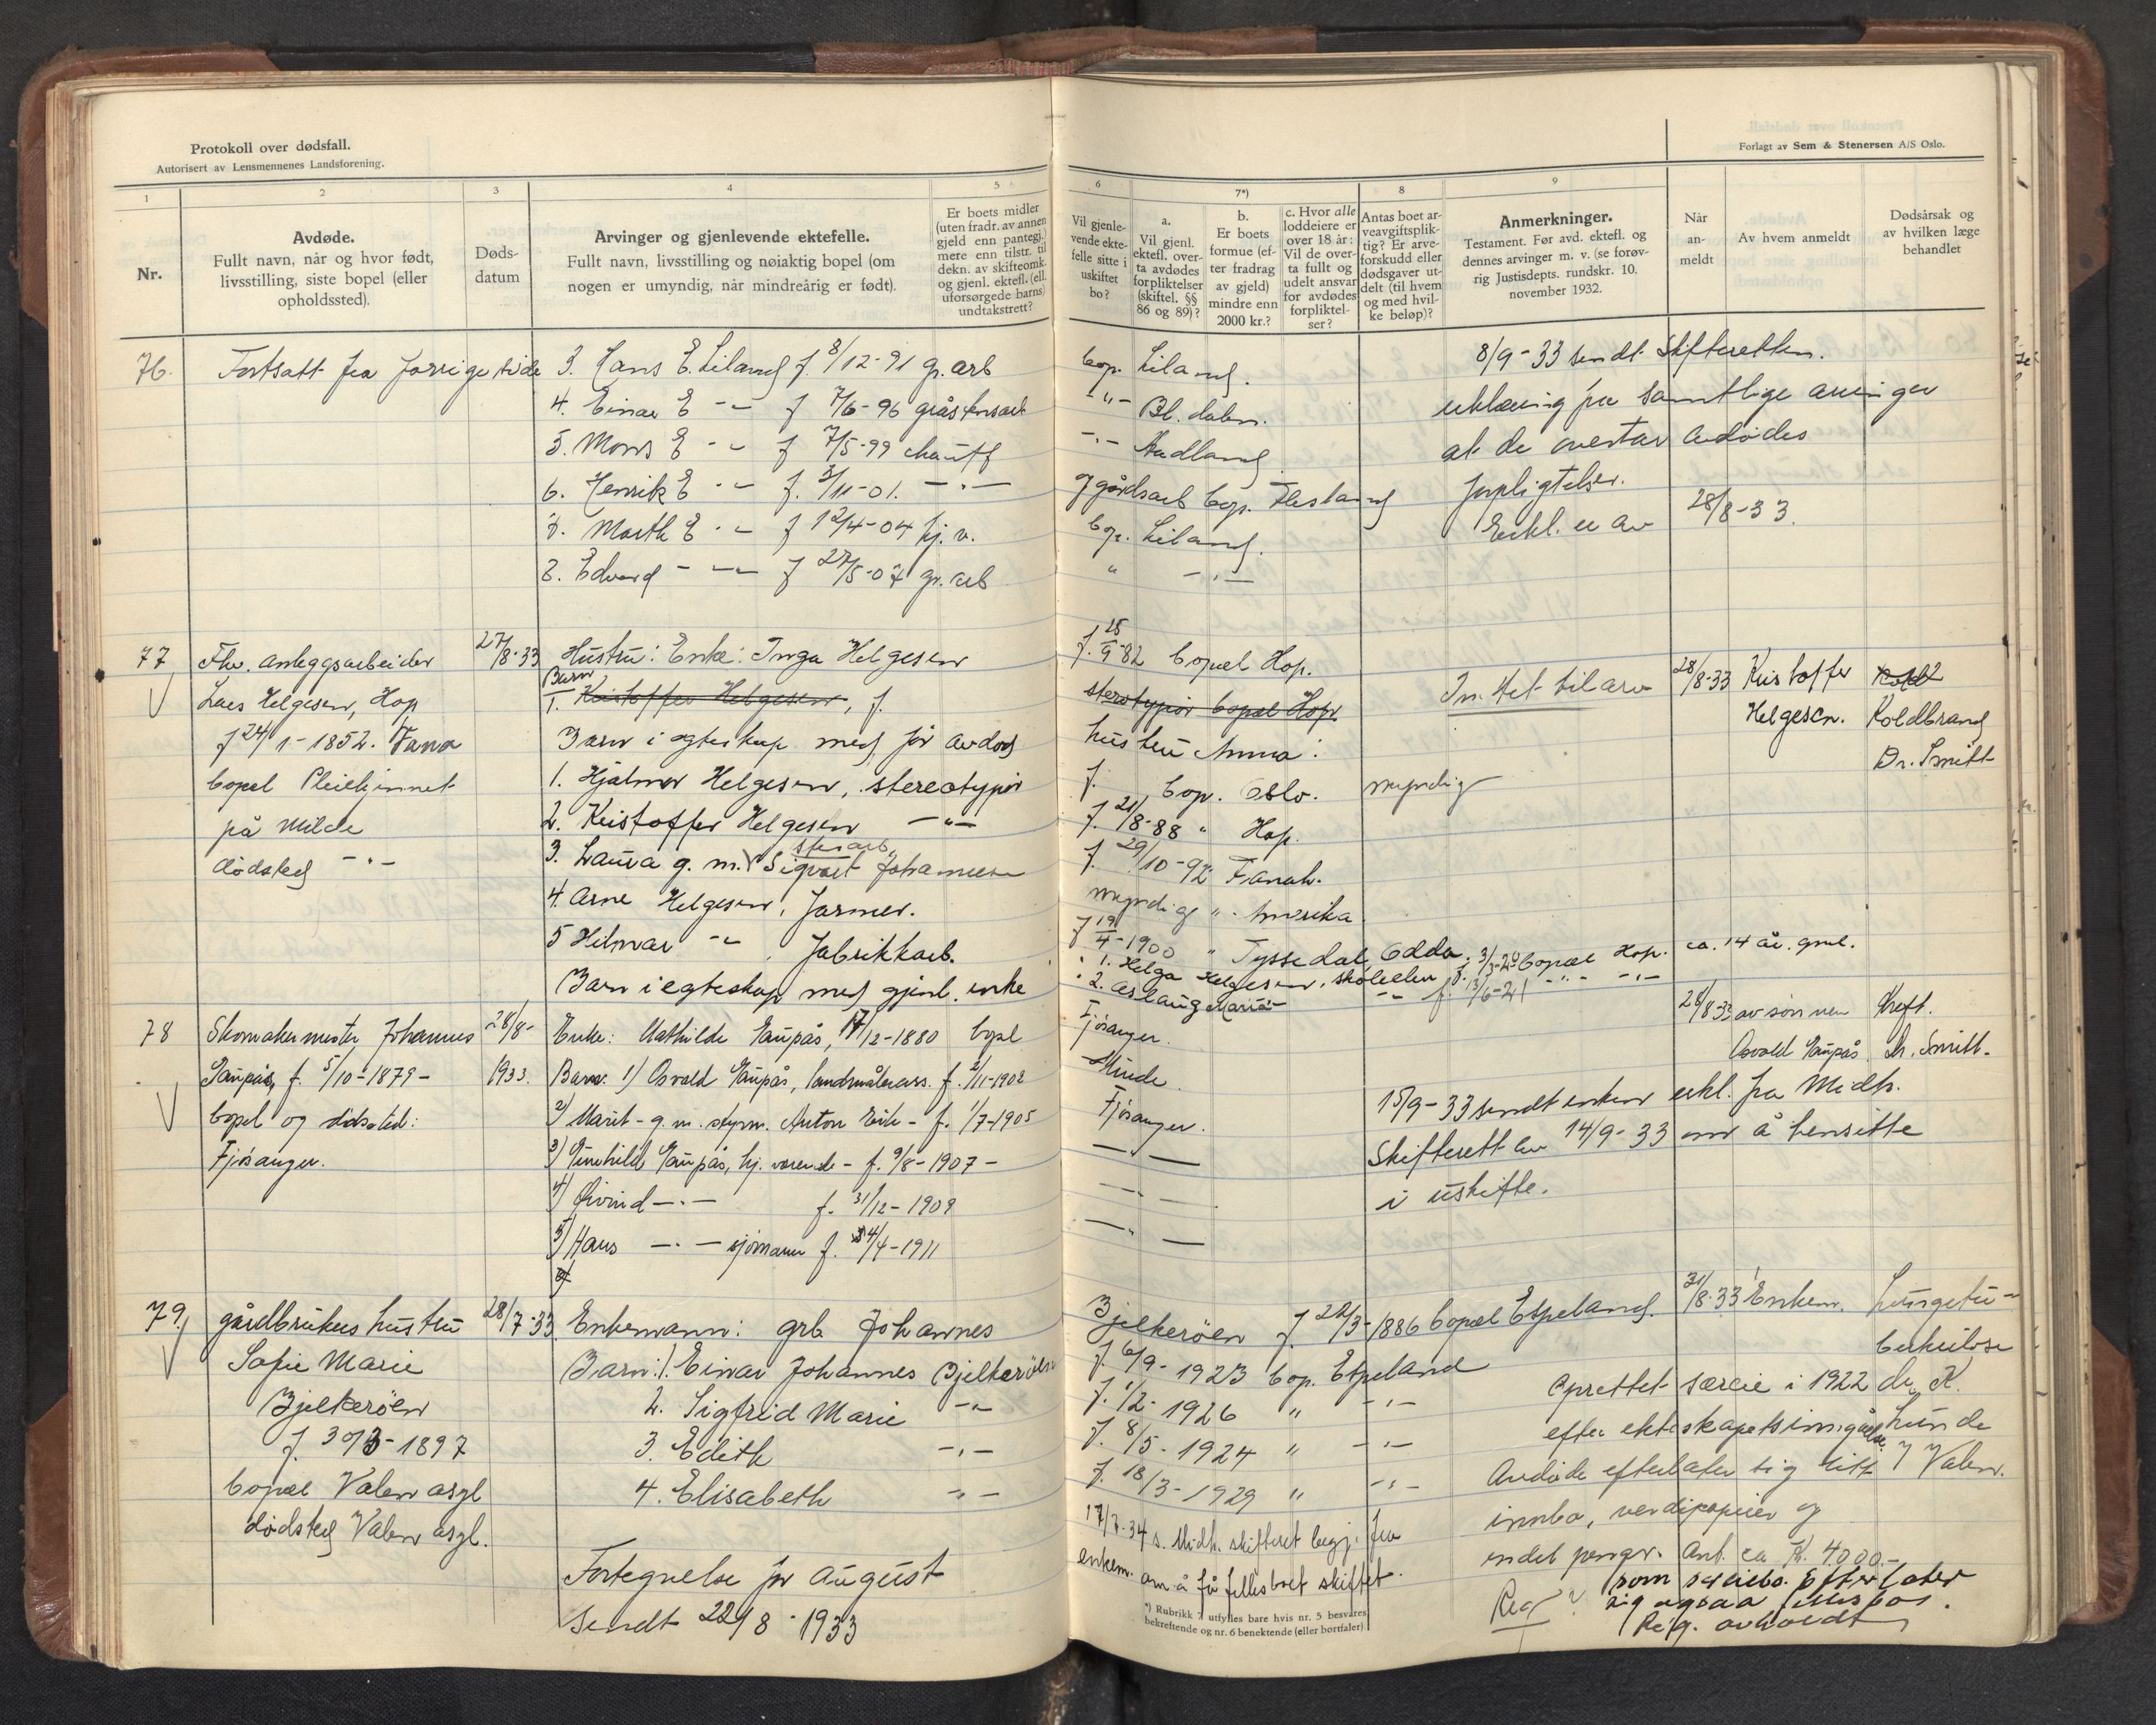 Protokoll over dødsfall.
Autorisert av Lensmennenes Landsforening.
Forlagt av Sem & Stenersen A/S Oslo.
1
2
3
4
5
6
7*)
8
9
Nr.
Avdøde.
Fullt navn, når og hvor født,
livsstilling, siste bopel (eller
opholdssted).
Døds-
datum
Arvinger og gjenlevende ektefelle.
Fullt navn, livsstilling og nøiaktig bopel (om
nogen er umyndig, når mindreårig er født).
Er boets midler
(uten fradr. av annen
gjeld enn pantegj.)
mere enn tilstr. til
dekn. av skifteomk.
og gjenl. ektefl. (ell.
uforsørgede barns)
undtakstrett?
Vil gjenle-
vende ekte-
felle sitte i
uskiftet
bo?
a.
Vil gjenl.
ektefl. over-
ta avdødes
forpliktelser
(skiftel. §§
86 og 89)?
b.
Er boets
formue (ef-
ter fradrag
av gjeld)
mindre enn
2000 kr.?
c. Hvor alle
loddeiere er
over 18 år:
Vil de over-
ta fullt og
udelt ansvar
for avdødes
forpliktel-
ser?
Antas boet ar-
veavgiftsplik-
tig? Er arve-
forskudd eller
dødsgaver ut-
delt (til hvem
og med hvil-
ke beløp)?
Anmerkninger.
Testament. Før avd. ektefl. og
dennes arvinger m. v. (se forøv-
rig Justisdepts. rundskr. 10.
november 1932.
Når
an-
meldt
Av hvem anmeldt
Dødsårsak og
av hvilken læge
behandlet
76. Fortsatt fra forrige side 3. Hans E. Liland f. 8/12-91 gr. arb bop. Liland.
4. Einar E -"- f 7/6-96 gråstensarb -"- Bl. dalen.
5. Mons E -"- f 7/5-99 chauff -"- Nadland
6. Henrik E -"- f. 3/11-01. -"- og gårdsarb bop. Flesland
7. Marth E -"- f 12/4-04 hj. v. bop. Liland.
8. Edvard -"- f 27/5-07 gr. arb " -"-
8/9-33 sendt Skifteretten.
erklæring fra samtlige arvinger
at de overtar avdødes
forpligtelser.
Erkl. er av 28/8-33.
77 Fhv. anleggsarbeider 27/8-33 Hustru: Enke: Inga Helgesen f. 25/9-82 bopæl Hop.
Lars Helgesen, Hop Barn 1. Kristoffer Helgesen, f. stereotypør bopæl Hop.
f 24/1-1852. Fana Barn i egteskap med før avdød hustru Anna:
bopel Pleiehjemmet 1. Hjalmar Helgesen, stereotypør f. bop. Oslo. myndig
på Milde 2. Kristoffer Helgesen -"- f. 21/8-88 " Hop.
dødsted -"- 3. Laura g. m. Sigvart Johannesen f. 29/10-92 Fanah.
4. Arne Helgesen, farmer. myndig " Amerika
5 Hilmar -"- , fabrikkarb. f 19/4-1900 " Tyssedal Odda
Barn i egteskap med gjenl. enke 1. Helga Helgesen, skoleelev f. 3/3-20 bopæl Hop. ca. 14 år. gml.
2. Aslaug Marie -"- f. 13/6-21 -"- -"-
28/8-33 Kristoffer
Helgesen. Koldbrand
Dr. Smitt
78 Skomakermester Johannes 28/8- Enke: Mathilde Gaupås, 17/12-1880 bopl Fjøsanger.
Gaupås, f. 5/10-1879- 1933. Barn: 1) Osvald Gaupås, landmålerass. f. 2/11-1902 Minde.
bopel og dødssted: 2) Marit - g. m. styrm. Anton Eide - f. 1/7-1905 Fjøsanger.
Fjøsanger. 3) Gunhild Gaupås, hj. værende - f. 9/8-1907 - -"-
4) Øivind -"- f. 31/12-1909 -"-
5) Hans -"- sjømann f. 4/4-1911 -"-
28/8 33 av sønnen Kreft.
Osvald Gaupås. Dr. Smitt.
15/9-33 sendt enken erkl. fra Midh.
Skifterett av 14/9-33 om å hensitte
i uskifte.
79, gårdbrukers hustru 28/7-33 Enkemann: grb. Johannes Bjelkerøen f 22/3-1886 bopæl Espeland. 31/8-33 Enkem. Lungetu-
Sofie Marie Barn: 1. Einar Johannes Bjelkerøen f. 6/9-1923 bop. Espeland berkulose
Bjelkerøen 2. Sigfrid Marie -"- f. 1/2-1926 " -"-
f 30/3-1897 3. Edith -"- f. 8/5-1924 " -"-
bopæl Valen asyl 4. Elisabeth -"- f. 18/3-1929 " -"-
dødsted Valen asyl.
17/7-34 s. Midh. skifteret begj. fra
enkem. om å få fellesboet skiftet.
Oprettet særeie i 1922 dr. K.
efter ekteskapets inngåelse. Lunde
Avdøde efterlater sig litt Valen.
innbo, verdipapirer og
endel penger. Ant. ca K. 4000.-
som særeiebo. Efterlater
sig ogsaa fellesbos.
Reg. avholdt
Reg ?
Fortegnelse for August
sendt 22/8-1933
*) Rubrikk 7 utfylles bare hvis nr. 5 besvares
bekreftende og nr. 6 benektende (eller bortfaler)